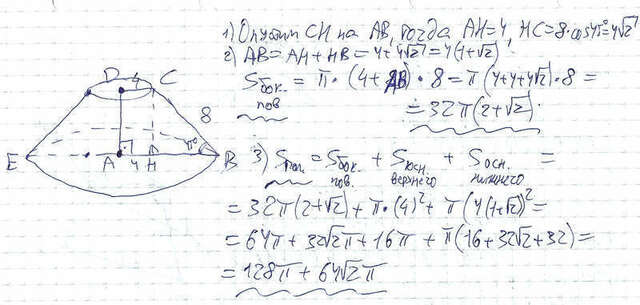 1) Опустим CH на AB, тогда AH=4, HC=8·cos45°=4√2
2) AB=AH+HB=4+4√2=4(1+√2)
Sбок. пов = π·(4+AB)·8=π(4+4+4√2)·8=
=32π(2+√2).
D 4 C
8
45°
E A 4 H B
3) Sпол.=Sбок. пов.+Sосн. верхнего+Sосн. нижнего=
=32π(2+√2)+π·(4)²+π(4(1+√2))²=
=64π+32√2π+16π+π(16+32√2+32)=
=128π+64√2π